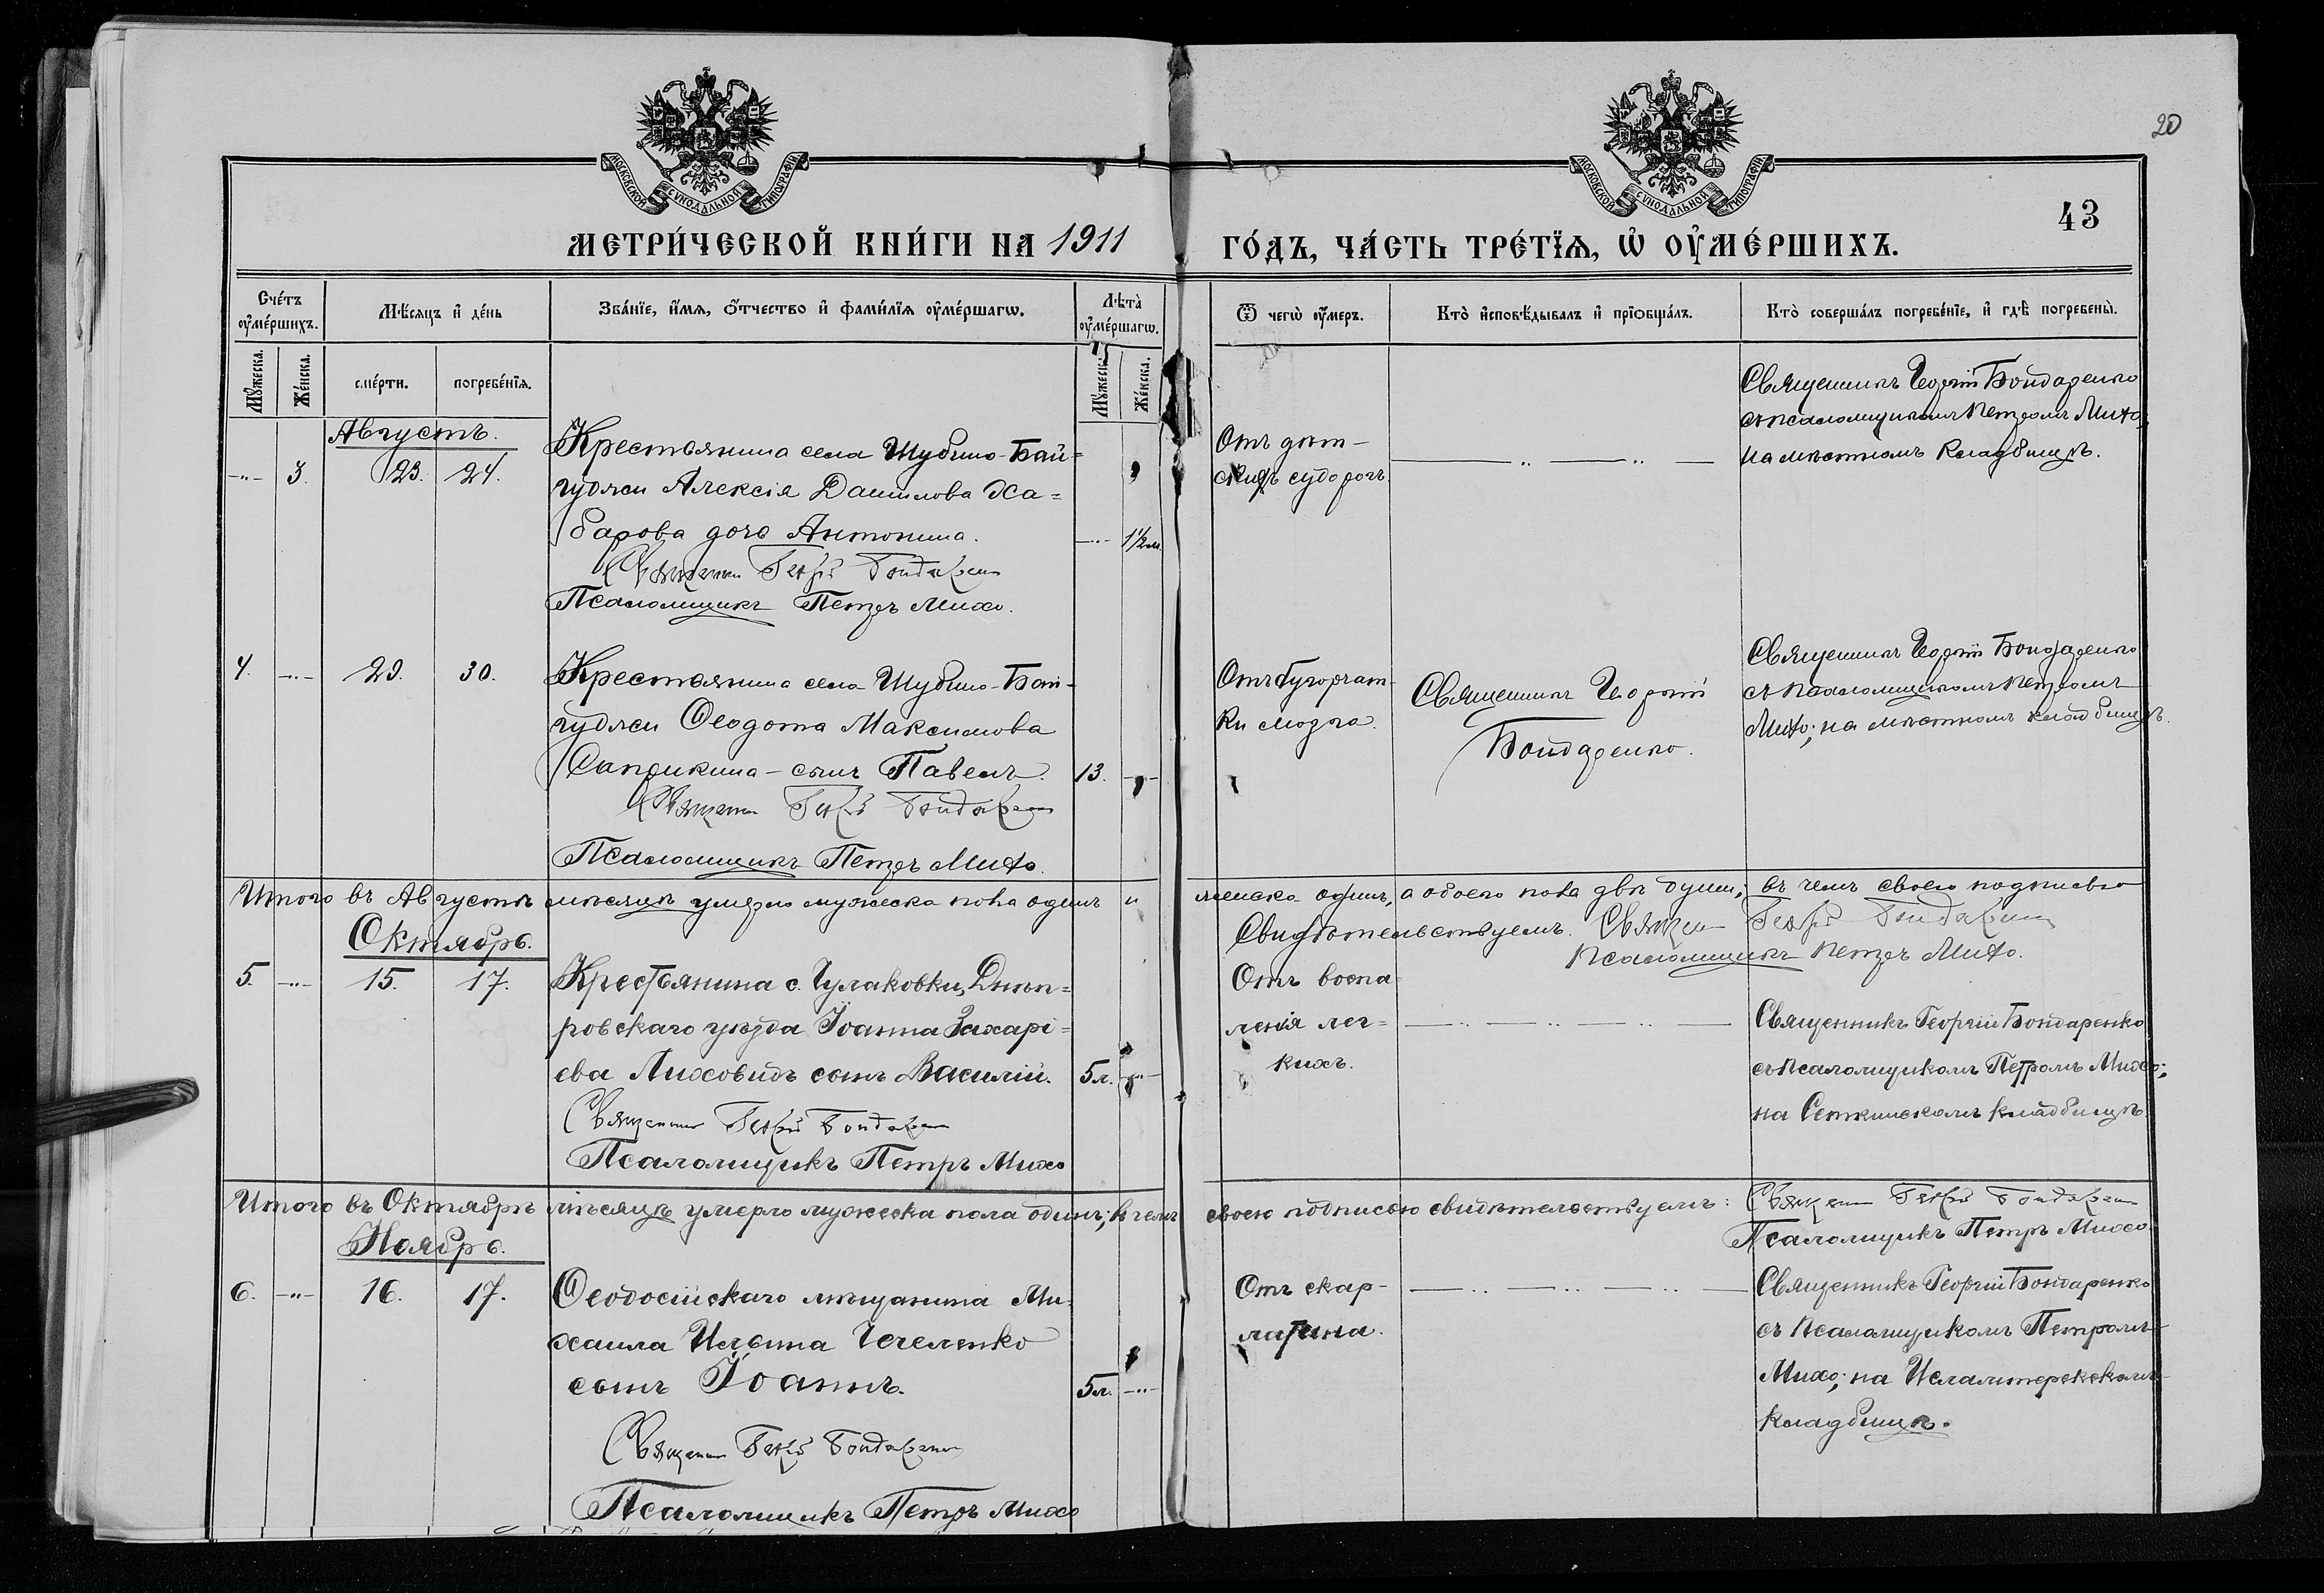 20
МОСКОВСКОЙ СУНОДАЛЬНОЙ ТИПОГРАФІИ
МОСКОВСКОЙ СУНОДАЛЬНОЙ ТИПОГРАФІИ
43
МЕТРИ́ЧЕСКОЙ КНИ́ГИ НА 1911 ГО́ДЪ, ЧА́СТЬ ТРЕ́ТЇѦ, Ѡ҆ ОУ҆МЕ́РШИХЪ.
Сче́тъ оу҆ме́ршихъ.
Мѣ́сяцъ и҆ де́нь
Зва́нїе, и҆́мѧ, ѻ҆́тчество и҆ фами́лїѧ оу҆ме́ршагѡ.
Лѣта̀ оу҆ме́ршагѡ.
Ѿ чегѡ̀ оу҆́меръ.
Кто̀ и҆сповѣ́дывалъ и҆ прїѡбща́лъ.
Кто̀ соверша́лъ погребе́нїе, и҆ гдѣ̀ погребены̀.
Мꙋ́жеска.
Же́нска.
сме́рти.
погребе́нїѧ.
Мꙋ́жеска.
Же́нска.
Августъ.
-"- 3. 23. 24.
Крестьянина села Шубино-Бай=
гуджи Алексія Данилова Жа=
барова дочь Антонина. -"- 1½ м.
Священникъ Георгій Бондаренко
Псаломщикъ Петръ Михо.
Отъ дѣт-
скихъ судорогъ.
Священникъ Георгій Бондаренко
съ псаломщикомъ Петромъ Михо;
на мѣстномъ кладбищѣ.
4. -"- 29. 30.
Крестьянина села Шубино-Бай-
гуджи Ѳеодота Максимова
Саприкина - сынъ Павелъ. 13. -"-
Священникъ Георгій Бондаренко
Псаломщикъ Петръ Михо.
Отъ бугорчат-
ки мозга.
Священникъ Георгій
Бондаренко.
Священникъ Георгій Бондаренко
съ псаломщикомъ Петромъ
Михо; на мѣстномъ кладбищѣ.
Итого въ Августѣ мѣсяцѣ умерло мужеска пола одинъ и женска одинъ, а обоего пола двѣ души; въ чемъ своею подписью
Свидѣтельствуемъ. Священникъ Георгій Бондаренко
Псаломщикъ Петръ Михо.
Октябрь.
5. -"- 15. 17.
Крестьянина с. Чулаковки, Днѣп=
ровскаго уѣзда Іоанна Захарі=
ева Лиховидъ сынъ Василій. 5 л. -"-
Священникъ Георгій Бондаренко
Псаломщикъ Петръ Михо
Отъ воспа-
ленія лег=
кихъ.
Священникъ Георгій Бондаренко
съ псаломщикомъ Петромъ Михо;
на кладбищѣ.
Итого въ Октябрѣ мѣсяцѣ умерло мужеска пола одинъ; въ чемъ своею подписью свидѣтельствуемъ: Священникъ Георгій Бондаренко
Псаломщикъ Петръ Михо
Ноябрь.
6. -"- 16. 17.
Ѳеодосійскаго мѣщанина Ми-
хаила Ильина Чечеленко
сынъ Іоаннъ. 5 л. -"-
Священникъ Георгій Бондаренко
Псаломщикъ Петръ Михо
Отъ скар-
латина.
Священникъ Георгій Бондаренко
съ псаломщикомъ Петромъ
Михо; на Исламтерекскомъ
кладбищѣ.